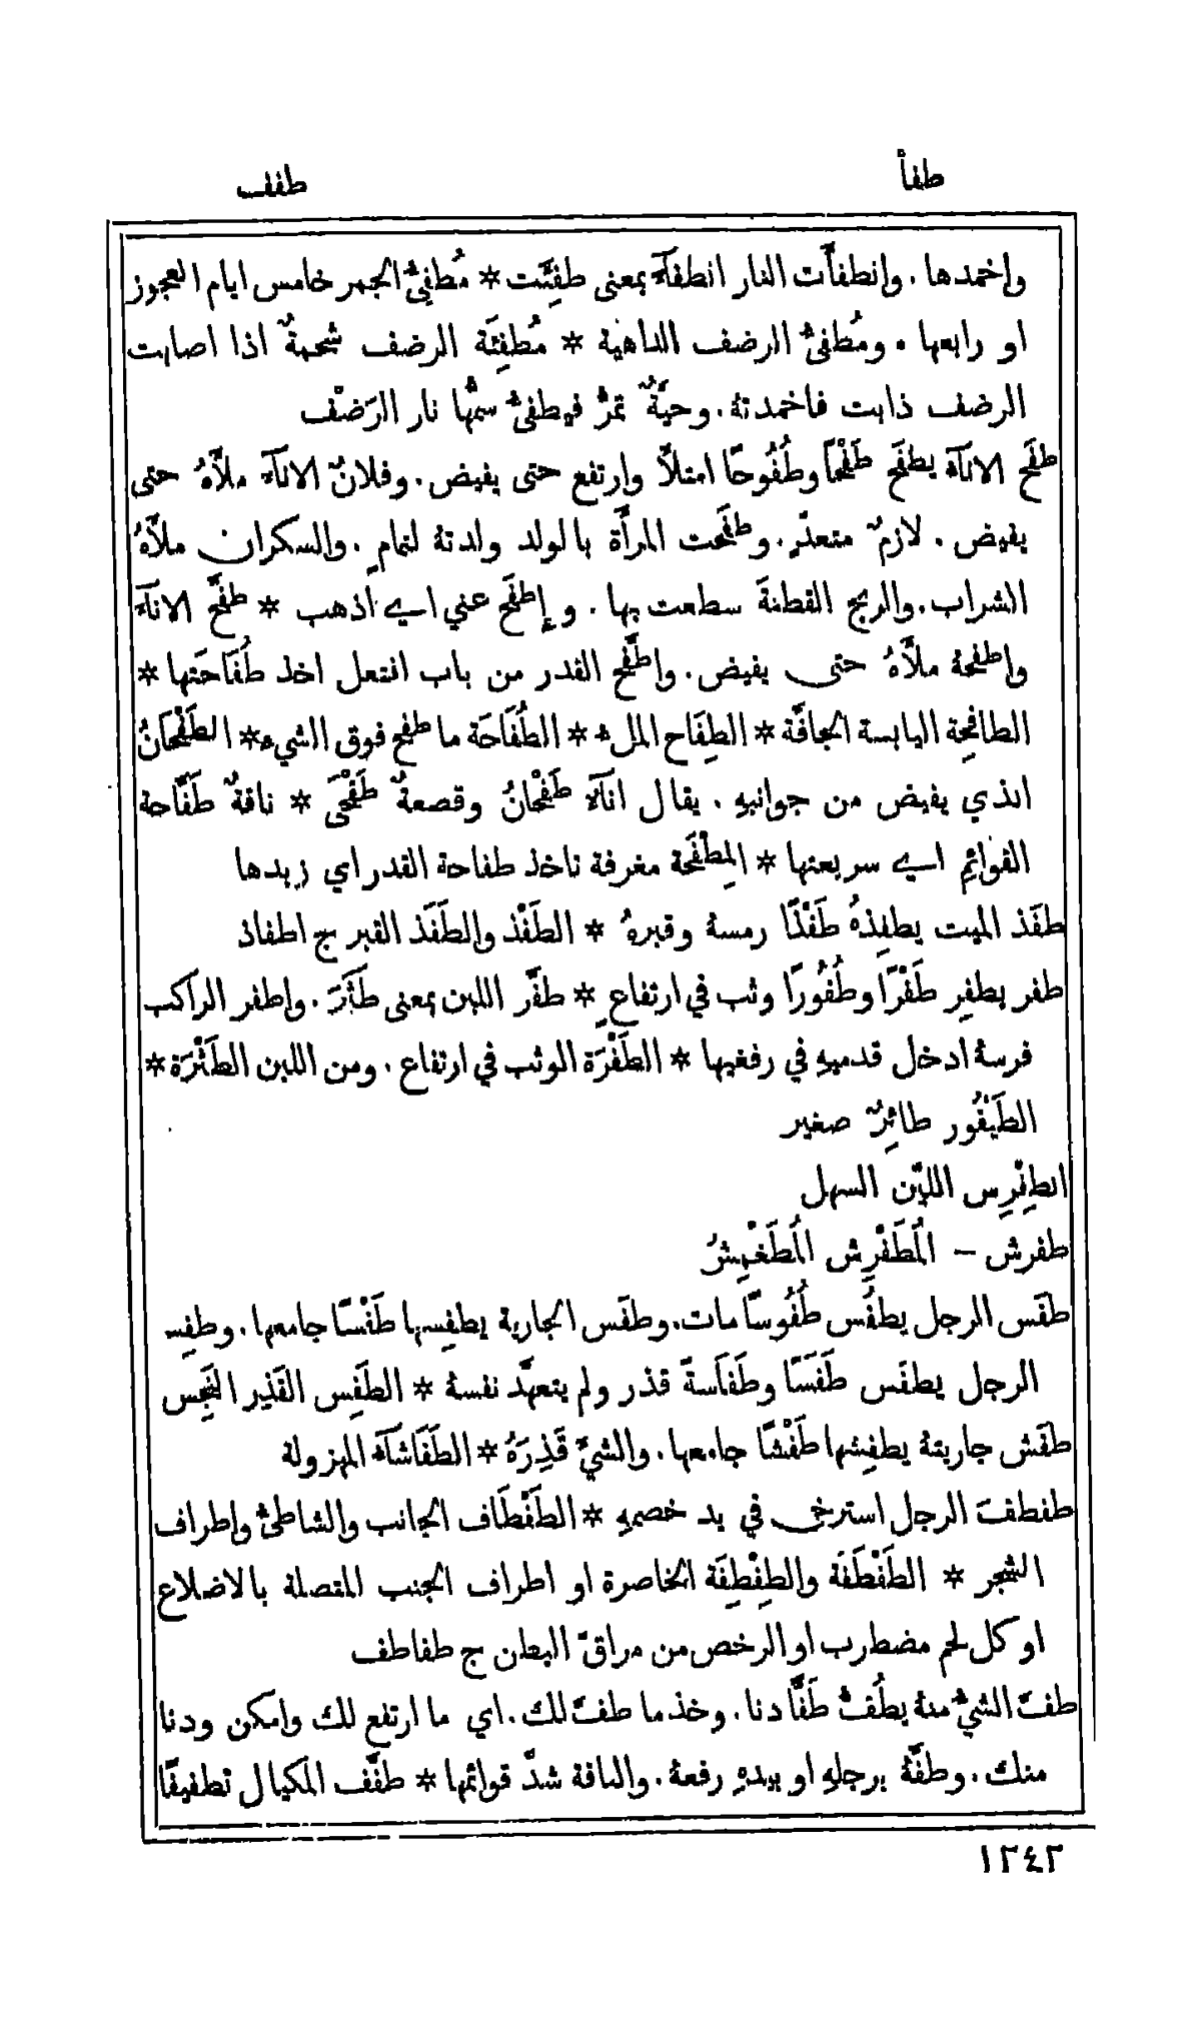 طفأ
طفف
واخمدها. وانطفأَت النار انطفآءً بمعنى طفِئَت * مُطفِئُ الجمر خامس ايام العجوز
او رابعها. ومُطفئُ الرضف الداهية * مُطفِئَة الرضف شحمةٌ اذا اصابت
الرضف ذابت فاخمدتهُ. وحيَّةٌ تمرُّ فيطفئُ سمُّها نار الرَضْف
طفَح الانآءُ يطفَح طَفْحًا وطُفُوحًا امتلأَ وارتفع حتى يفيض. وفلانٌ الانآءَ ملأَهُ حتى
يفيض. لازمٌ متعدٍّ. وطفَحت المرأَة بالولد ولدتهُ لتمامٍ. والسكران ملأَهُ
الشراب. والريح القطنةَ سطعت بها. و إِطفَح عني اي اذهب * طفَّح الانآءَ
واطفحهُ ملأَهُ حتى يفيض. واطَّفح القدر من باب افتعل اخذ طُفَاحَتها *
الطافِحة اليابسة الجافَّة * الطِفَاح الملءُ * الطُفَاحَة ما طفح فوق الشيء * الطَفْحَانُ
الذي يفيض من جوانبهِ. يقال انآءٌ طَفْحَانُ وقصعةٌ طَفْحَى * ناقةٌ طَفَّاحة
القوائِمِ اي سريعتها * المِطْفَحَة مغرفة تاخذ طفاحة القدر اي زبدها
طفَذ الميت يطفِذهُ طَفْذًا رمسهُ وقبرهُ * الطَفْذ والطَفَذ القبر ج اطفاذ
طفر يطفِر طَفْرًا وطُفُورًا وثب في ارتفاعٍ * طفَّر اللبن بمعنى طَثَّرَ. واطفر الراكب
فرسهُ ادخل قدميهِ في رفغيها * الطَفْرَة الوثب في ارتفاع. ومن اللبن الطَثْرَة *
الطَيْفُور طائِرٌ صغير
الطِفْرِس الليّن السهل
طفرش — المُطَفْرِش المُطَغْمِشُ
طفَس الرجل يطفُس طُفُوسًا مات. وطفَس الجارية يطفِسها طَفْسًا جامعها. وطفِس
الرجل يطفَس طَفَسًا وطَفَاسةً قذر ولم يتعهَّد نفسهُ * الطَفِس القَذِر النَّجِس
طفَش جاريتهُ يطفِشها طَفْشًا جامعها. والشيَّ قَذِرَهُ * الطَفَاشَآءَ المهزولة
طفطفَ الرجل استرخى في يد خصمهِ * الطَفْطَاف الجانب والشاطئُ واطراف
الشجر * الطَفْطَفَة والطِفْطِفَة الخاصرة او اطراف الجنب المتصلة بالاضلاع
او كل لحم مضطرب او الرخص من مراقّ البطن ج طفاطف
طفَّ الشيُ منهُ يطُفُّ طَفًّا دنا. وخذ ما طفَّ لك. اي ما ارتفع لك وامكن ودنا
منك. وطفَّهُ برجلهِ او بيدهِ رفعهُ. والناقة شدّ قوائمها * طفَّف المكيال تطفيفًا
١٢٤٢